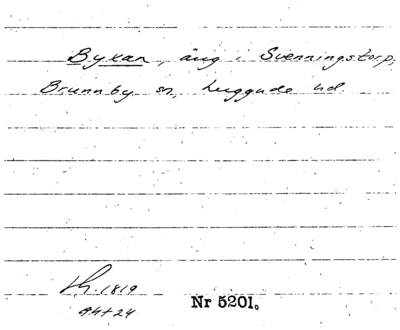 Bykan, äng i Svenningstorp,
Brunnby sn, Luggude hd.
Lh. 1819
A4+24 Nr 5201.